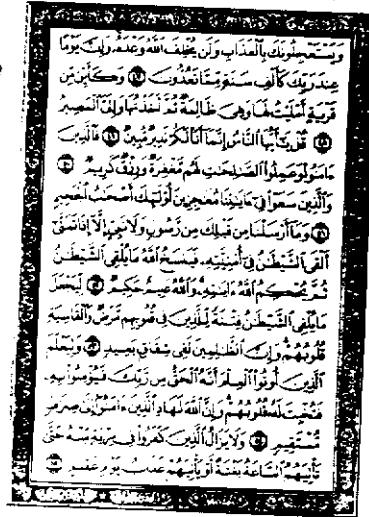 وَيَسْتَعْجِلُونَكَ بِٱلْعَذَابِ وَلَن يُخْلِفَ ٱللَّهُ وَعْدَهُۥ وَإِنَّ يَوْمًا
عِندَ رَبِّكَ كَأَلْفِ سَنَةٍ مِّمَّا تَعُدُّونَ ٤٧ وَكَأَيِّن مِّن
قَرْيَةٍ أَمْلَيْتُ لَهَا وَهِىَ ظَالِمَةٌ ثُمَّ أَخَذْتُهَا وَإِلَىَّ ٱلْمَصِيرُ
٤٨ قُلْ يَٰٓأَيُّهَا ٱلنَّاسُ إِنَّمَآ أَنَا۠ لَكُمْ نَذِيرٌ مُّبِينٌ ٤٩ فَٱلَّذِينَ
ءَامَنُوا۟ وَعَمِلُوا۟ ٱلصَّٰلِحَٰتِ لَهُم مَّغْفِرَةٌ وَرِزْقٌ كَرِيمٌ ٥٠
وَٱلَّذِينَ سَعَوْا۟ فِىٓ ءَايَٰتِنَا مُعَٰجِزِينَ أُو۟لَٰٓئِكَ أَصْحَٰبُ ٱلْجَحِيمِ
٥١ وَمَآ أَرْسَلْنَا مِن قَبْلِكَ مِن رَّسُولٍ وَلَا نَبِىٍّ إِلَّآ إِذَا تَمَنَّىٰٓ
أَلْقَى ٱلشَّيْطَٰنُ فِىٓ أُمْنِيَّتِهِۦ فَيَنسَخُ ٱللَّهُ مَا يُلْقِى ٱلشَّيْطَٰنُ
ثُمَّ يُحْكِمُ ٱللَّهُ ءَايَٰتِهِۦ وَٱللَّهُ عَلِيمٌ حَكِيمٌ ٥٢ لِّيَجْعَلَ
مَا يُلْقِى ٱلشَّيْطَٰنُ فِتْنَةً لِّلَّذِينَ فِى قُلُوبِهِم مَّرَضٌ وَٱلْقَاسِيَةِ
قُلُوبُهُمْ وَإِنَّ ٱلظَّٰلِمِينَ لَفِى شِقَاقٍۭ بَعِيدٍ ٥٣ وَلِيَعْلَمَ
ٱلَّذِينَ أُوتُوا۟ ٱلْعِلْمَ أَنَّهُ ٱلْحَقُّ مِن رَّبِّكَ فَيُؤْمِنُوا۟ بِهِۦ
فَتُخْبِتَ لَهُۥ قُلُوبُهُمْ وَإِنَّ ٱللَّهَ لَهَادِ ٱلَّذِينَ ءَامَنُوٓا۟ إِلَىٰ صِرَٰطٍ
مُّسْتَقِيمٍ ٥٤ وَلَا يَزَالُ ٱلَّذِينَ كَفَرُوا۟ فِى مِرْيَةٍ مِّنْهُ حَتَّىٰ
تَأْتِيَهُمُ ٱلسَّاعَةُ بَغْتَةً أَوْ يَأْتِيَهُمْ عَذَابُ يَوْمٍ عَقِيمٍ ٥٥